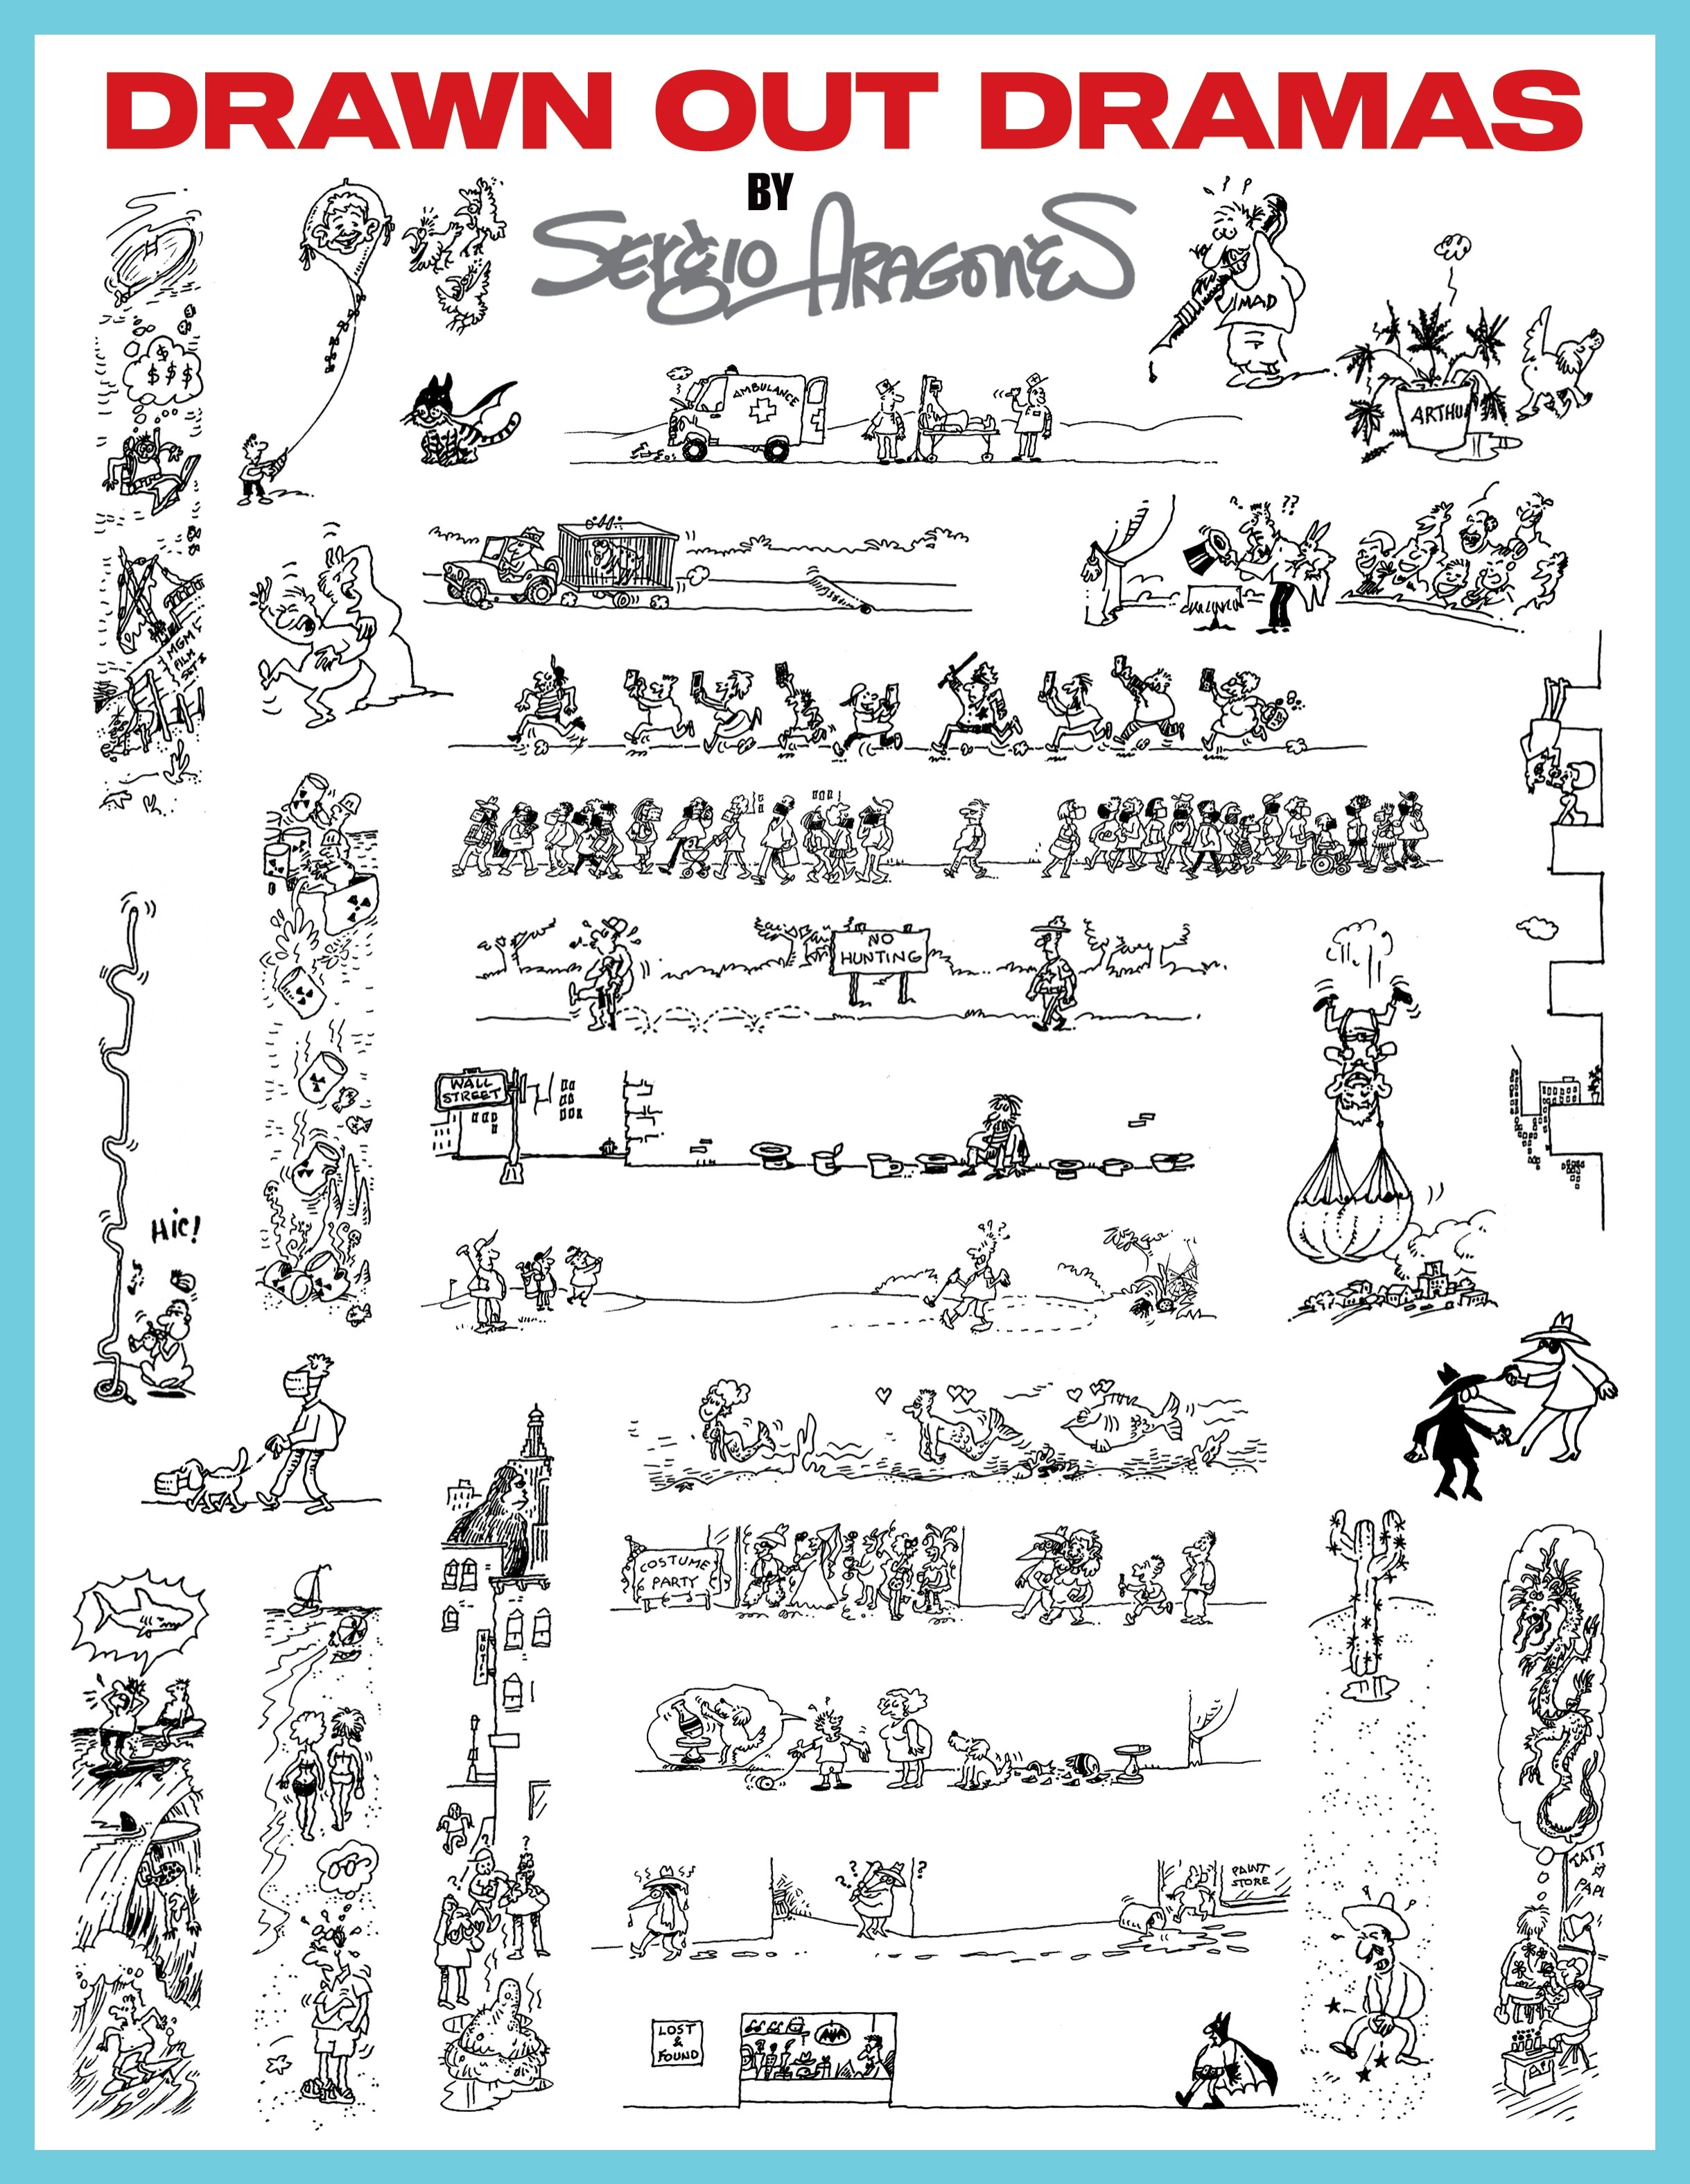 DRAWN OUT DRAMAS
BY
SERGIO ARAGONÉS
MAD
$
$ $ $
AMBULANCE
ARTHU
? ??
MGM
FILM
SET
NO
HUNTING
WALL
STREET
Hic!
COSTUME
PARTY
HOTEL
? ?
? ?
PAINT
STORE
TATT
LOST
&
FOUND